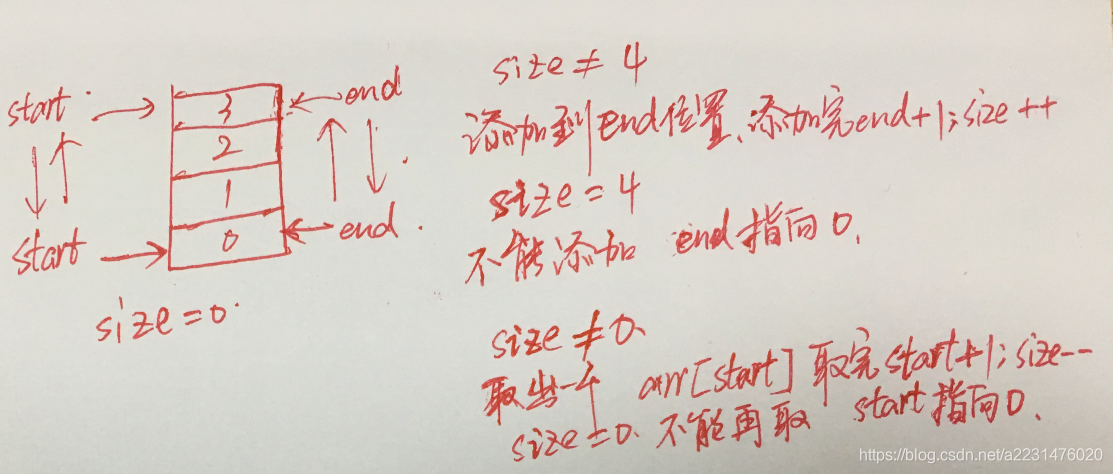 size ≠ 4
添加到end位置、添加完end+1;size++
size = 4
不能添加 end指向0.
size ≠ 0.
取出一个 arr[start] 取完start+1;size--
size = 0. 不能再取 start指向0.
start
start
3
2
1
0
end
end
size = 0
https://blog.csdn.net/a2231476020